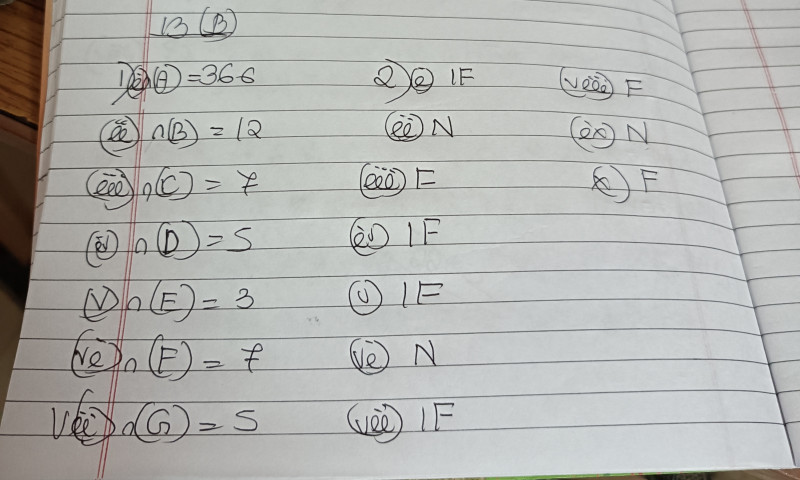 13 (B)
1) (i) n(A) = 366 2) (i) IF (viii) F
(ii) n(B) = 12 (ii) N (ix) N
(iii) n(C) = 7 (iii) F (x) F
(iv) n(D) = 5 (iv) IF
(v) n(E) = 3 (v) IF
(vi) n(F) = 7 (vi) N
(vii) n(G) = 5 (vii) IF